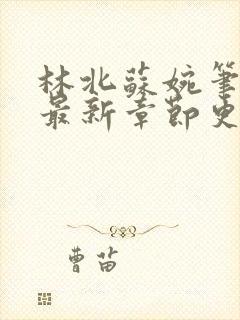 林北蘇婉筆
最新章節史
曹苗